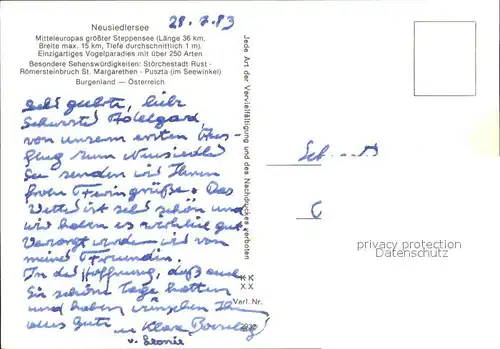 28.7.83
Neusiedlersee
Mitteleuropas größter Steppensee (Länge 36 km,
Breite max. 15 km, Tiefe durchschnittlich 1 m).
Einzigartiges Vogelparadies mit über 250 Arten
Besondere Sehenswürdigkeiten: Störchestadt Rust -
Römersteinbruch St. Margarethen - Puszta (im Seewinkel)
Burgenland — Österreich
Jede Art der Vervielfältigung und des Nachdruckes verboten
Sehr geehrte, liebe
Schwester Adelgard,
von unserem ersten Aus-
flug zum Neusiedl
See senden wir Ihnen
frohe Feriengrüße. Das
Wetter ist sehr schön und
wir haben es wirklich gut
Versorgt werden wir von
meiner Freundin.
In der Hoffnung, daß auch
Sie schöne Tage hatten
und haben wünschen Ihn
alles Gute Klara
u. Leonie
KK
XX
Verl. Nr.
privacy protection
Datenschutz